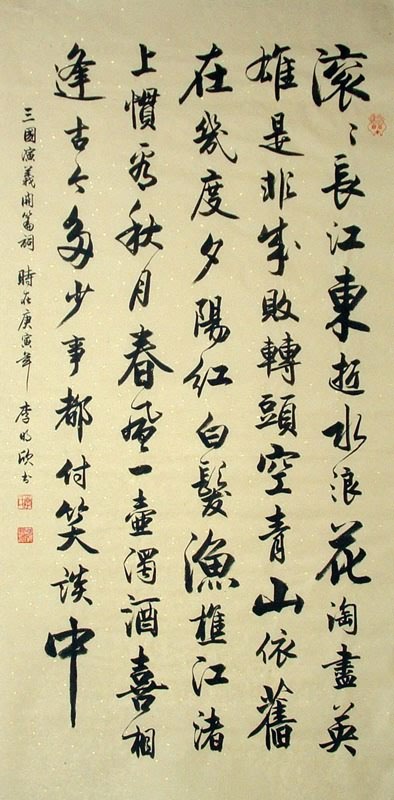 滚〻長江東逝水浪花淘盡英
雄是非成敗轉頭空青山依舊
在幾度夕陽紅白髮漁樵江渚
上慣看秋月春風一壺濁酒喜相
逢古今多少事都付笑談中
三國演義開篇詞 時在庚寅年 李明欣书